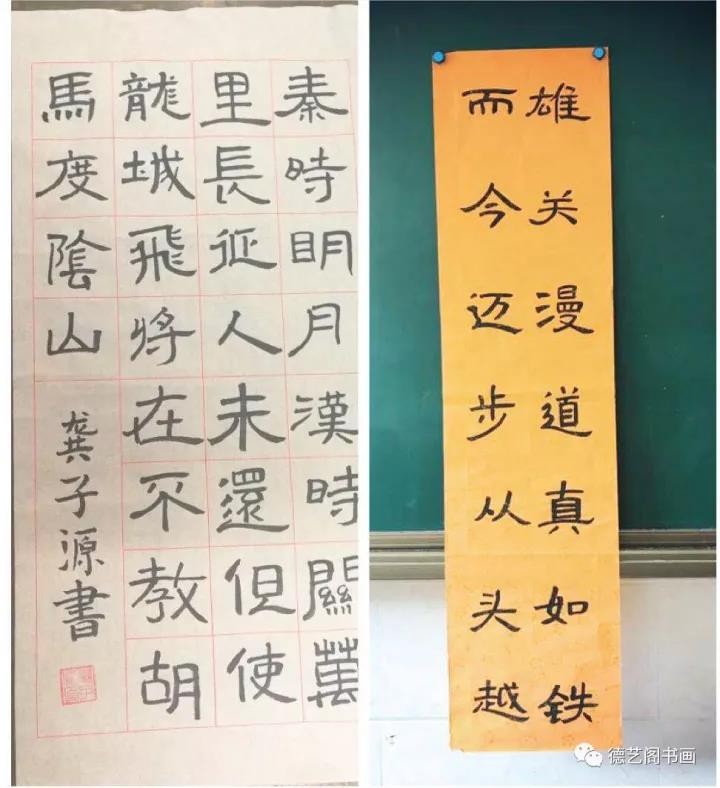 秦時明月漢時關萬
里長征人未還但使
龍城飛將在不教胡
馬度陰山
龚子源書
雄关漫道真如铁
而今迈步从头越
德艺阁书画